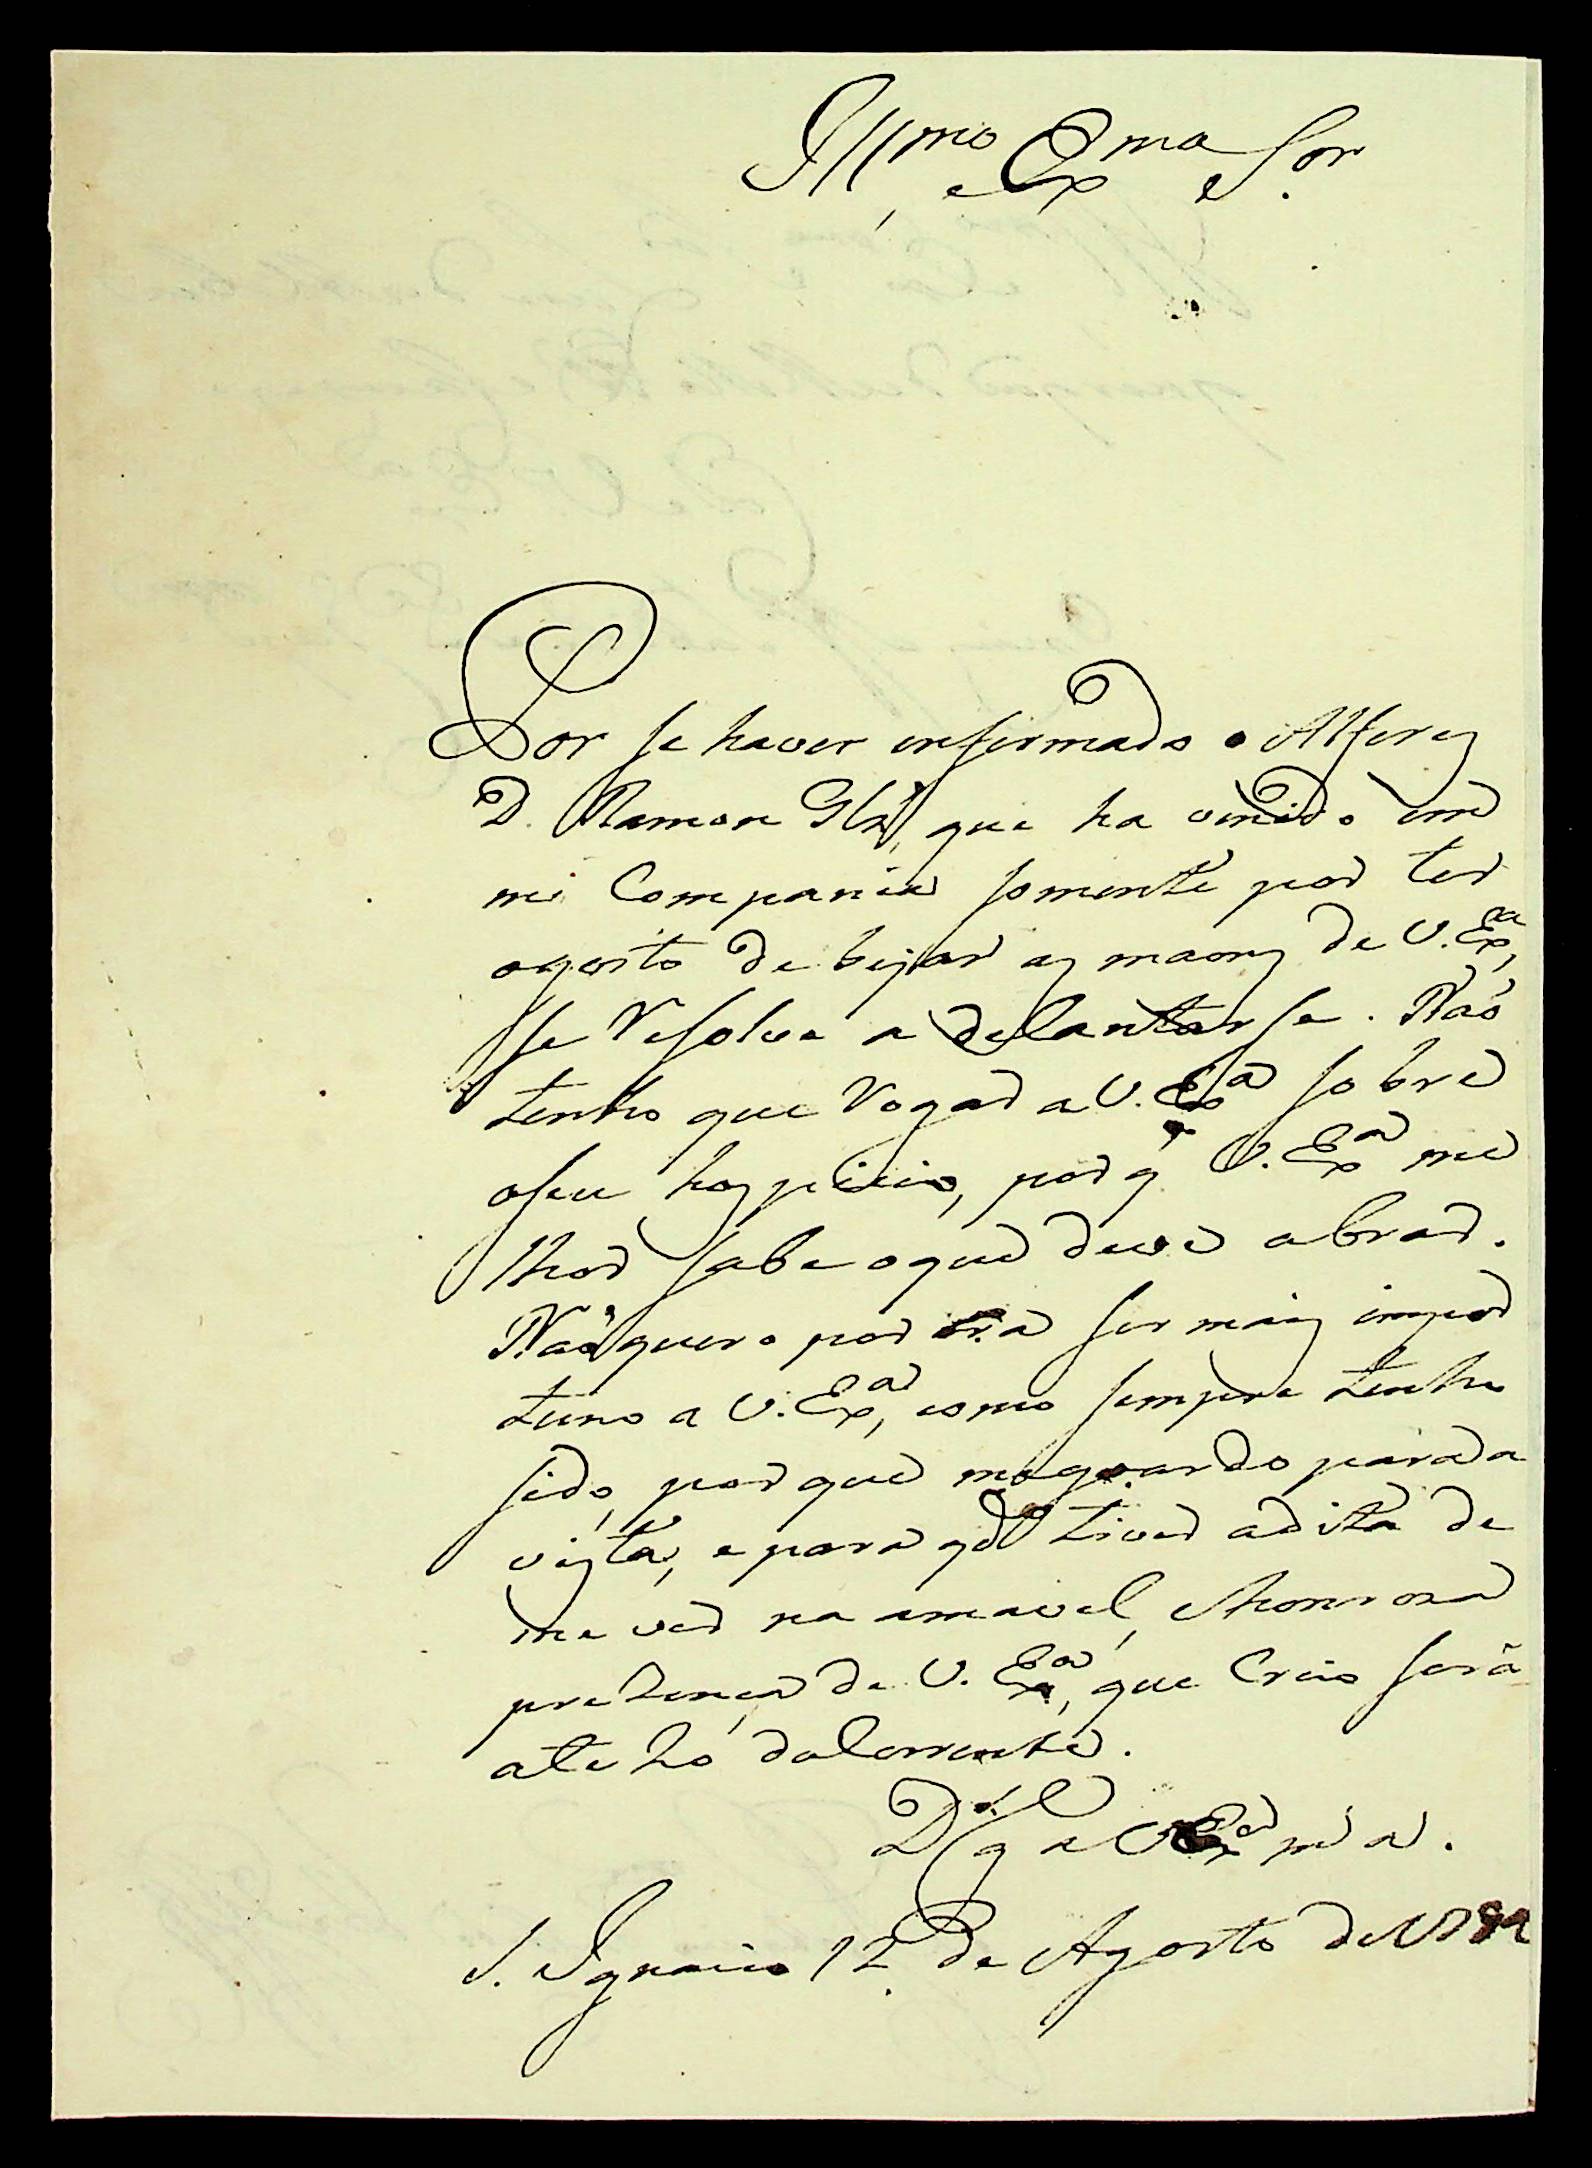 Illmo, e Exmo Sor.
Por se haver infermado o Alferez
D. Ramon Glz, que ha venido em
mi Compania somente por ter
ogosto de bejar az maonz de V. Exa,
se resolve a delantarse. Não
tenho que rogar a V. Exa sobre
oseu hozpicio, por q V. Exa me
lhor sabe oque deve abrar.
Não quero por ora ser maiz impor
tuno a V. Exa, como sempre tenho
sido, por que meguardo parada
vizta, e para qdo tiver adita de
me ver na amavel, ehonroza
prezença de V. Exa, que Creio será
ate ho dalorrente.
Ds ge a V Exa ms as.
S. Ignacio 12 de Agosto de